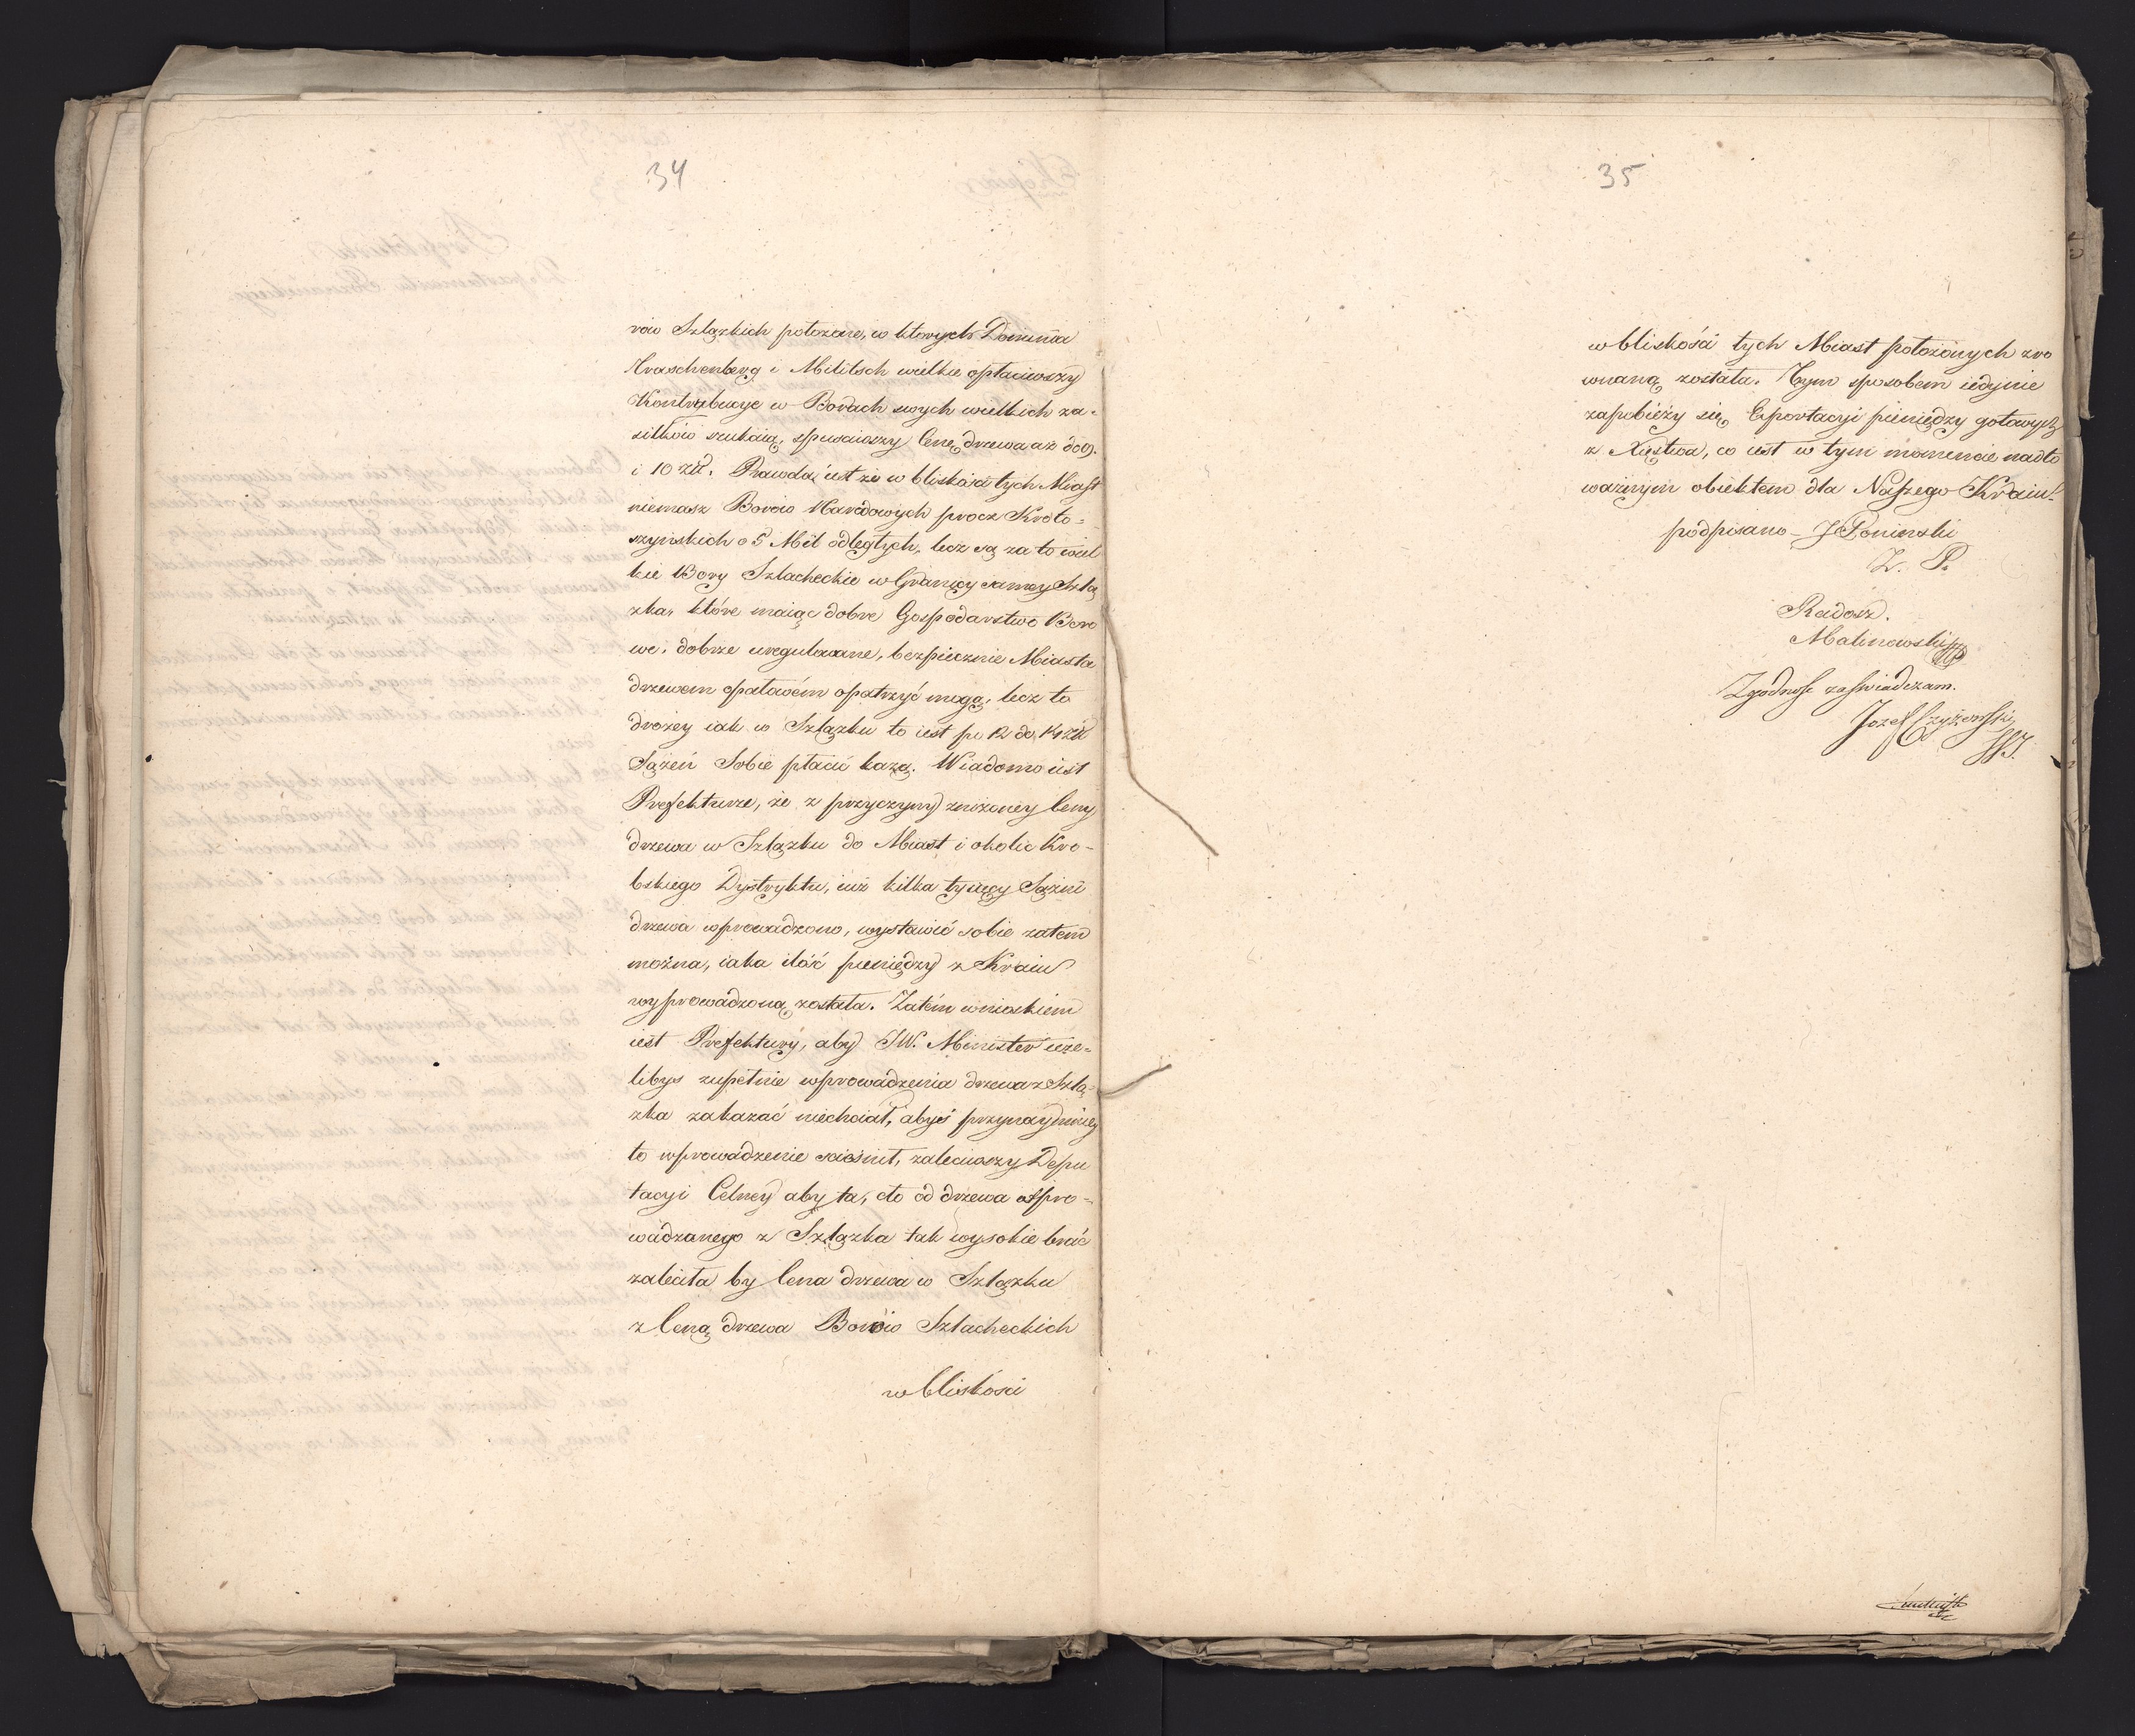 34
rów Szlązkich położone, w ktorych Dominia
Traschenberg i Militsch wielkie opłaciwszy
Kontrybucye w Borach swych wielkich za-
siłków szukaią, spusciwszy Cenę drzewa aż do 9.
i 10 zł. Prawda iest że w bliskości tych Miast
niemasz Borów Narodowych procz Kroto-
szyńskich o 5 Mil odległych, lecz są za to wiel
kie Bory Szlacheckie w Granicy samey Szlą
zka, które maiąc dobre Gospodarstwo Boro
we, dobrze uregulowane, bezpiecznie Miasta
drzewem opałowém opatrzyć mogą, lecz to
drożey iak w Szlązku to iest po 12 do 14 zł
Sążeń Sobie płacić każą. Wiadomo iest
Prefekturze, że z przyczyny zniżoney Ceny
drzewa w Szlązku do Miast i okolic Kro-
bskiego Dystryktu, iuż kilka tysięcy Sążni
drzewa wprowadzono, wystawić sobie zatem
można, iaka ilość pieniędzy z Kraiu
wyprowadzoną została. Zatém wnioskiem
iest Prefektury, aby JW. Minister ieże-
libyś zupełnie wprowadzenia drzewa z Szlą-
zka zakazać niechciał, abyś przynaymniey
to wprowadzenie ścieśnił, zaleciwszy Depu
tacyi Celney aby ta, cło od drzewa wpro-
wadzanego z Szlązka tak wysokie brać
zaleciła by Cena drzewa w Szlązku
z Ceną drzewa Borów Szlacheckich
w bliskosci
35
w bliskości tych Miast położonych zro
wnaną została. Tym sposobem iedynie
zapobieży się Exportacyi pieniędzy gotowych
z Xięstwa, co iest w tym momencie nadto
ważnym obiektem dla Naszego Kraiu!
podpisano - J Poninski
Z. P.
Radosz.
Malinowski
Zgodność zaświadczam.
Jozef Czyżewski